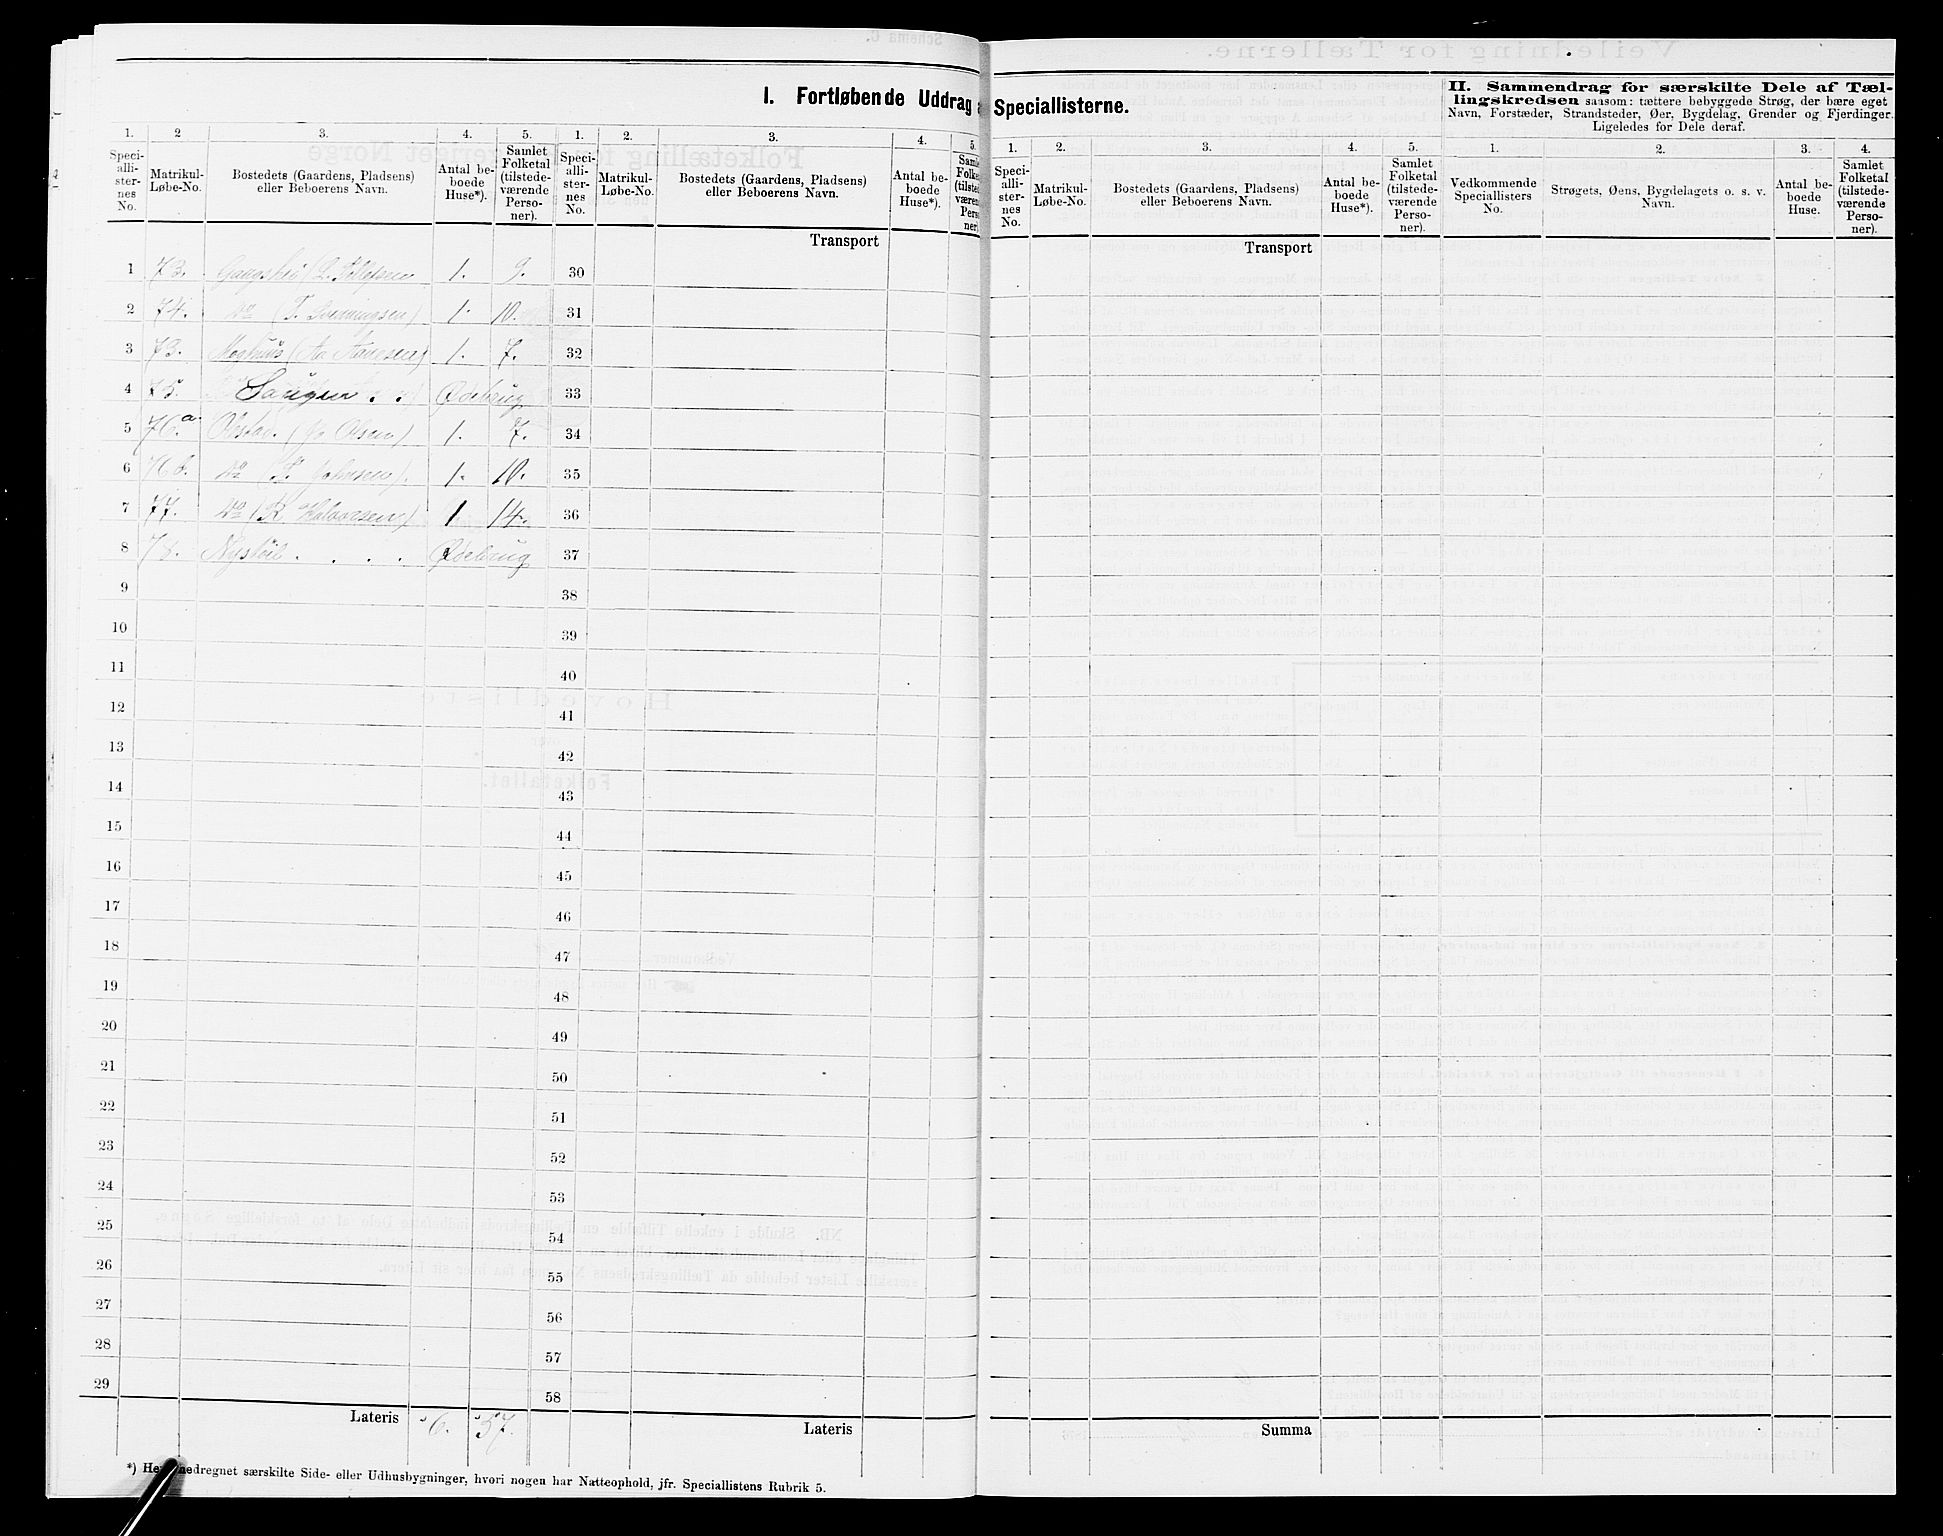 I. Fortløbende Uddrag a
Speciallisterne.
II. Sammendrag for særskilte Dele af Tæl-
lingskredsen saasom: tættere bebyggede Strøg, der bære eget
Navn, Forstæder, Strandsteder, Øer, Bygdelag, Grender og Fjerdinger.
Ligeledes for Dele deraf.
1. 2 3. 4. 5. 1. 2. 3. 4. 5.
Speci-
alli-
ster-
nes
No.
Matrikul-
Løbe-No.
Bostedets (Gaardens, Pladsens)
eller Beboerens Navn.
Antal be-
boede
Huse*).
Samlet
Folketal
(tilstede-
værende
Perso-
ner).
Speci-
alli-
ster-
nes
No.
Matrikul-
Løbe-No.
Bostedets (Gaardens, Pladsens)
eller Beboerens Navn.
Antal be-
boede
Huse*).
Samle
Folke
(tilste
væren
Pers
ner)
Transport
1 73. 1. 9. 30
2 74. do 1. 10. 31
3 73. 1. 7. 32
4 75. Ødebrug 33
5 76.a (Olsen) 1. 7. 34
6 76b. do (T. Johnsen). 1. 10. 35
7 77. do (K Halvorsen) 1 14. 36
8 78. . . . . Ødebrug 37
9 38
10 39
11 40
12 41
13 42
14 43
15 44
16 45
17 46
18 47
19 48
20 49
21 50
22 51
23 52
24 53
25 54
26 55
27 56
28 57
29 58
Lateris 6. 57. Lateris
*) Her medregnet særskilte Side- eller Udhusbygninger, hvori nogen har Natteophold, jfr. Speciallistens Rubrik 5.
1. 2. 3. 4. 5. 1. 2. 3. 4.
Speci-
alli-
ster-
nes
No.
Matrikul-
Løbe-No.
Bostedets (Gaardens, Pladsens)
eller Beboerens Navn.
Antal be-
boede
Huse*).
Samlet
Folketal
(tilstede-
værende
Perso-
ner).
Vedkommende
Speciallisters
No.
Strøgets, Øens, Bygdelagets o. s. v.
Navn.
Antal be-
boede
Huse.
Samlet
Folketal
(tilstede-
værende
Perso-
ner).
Transport
Summa